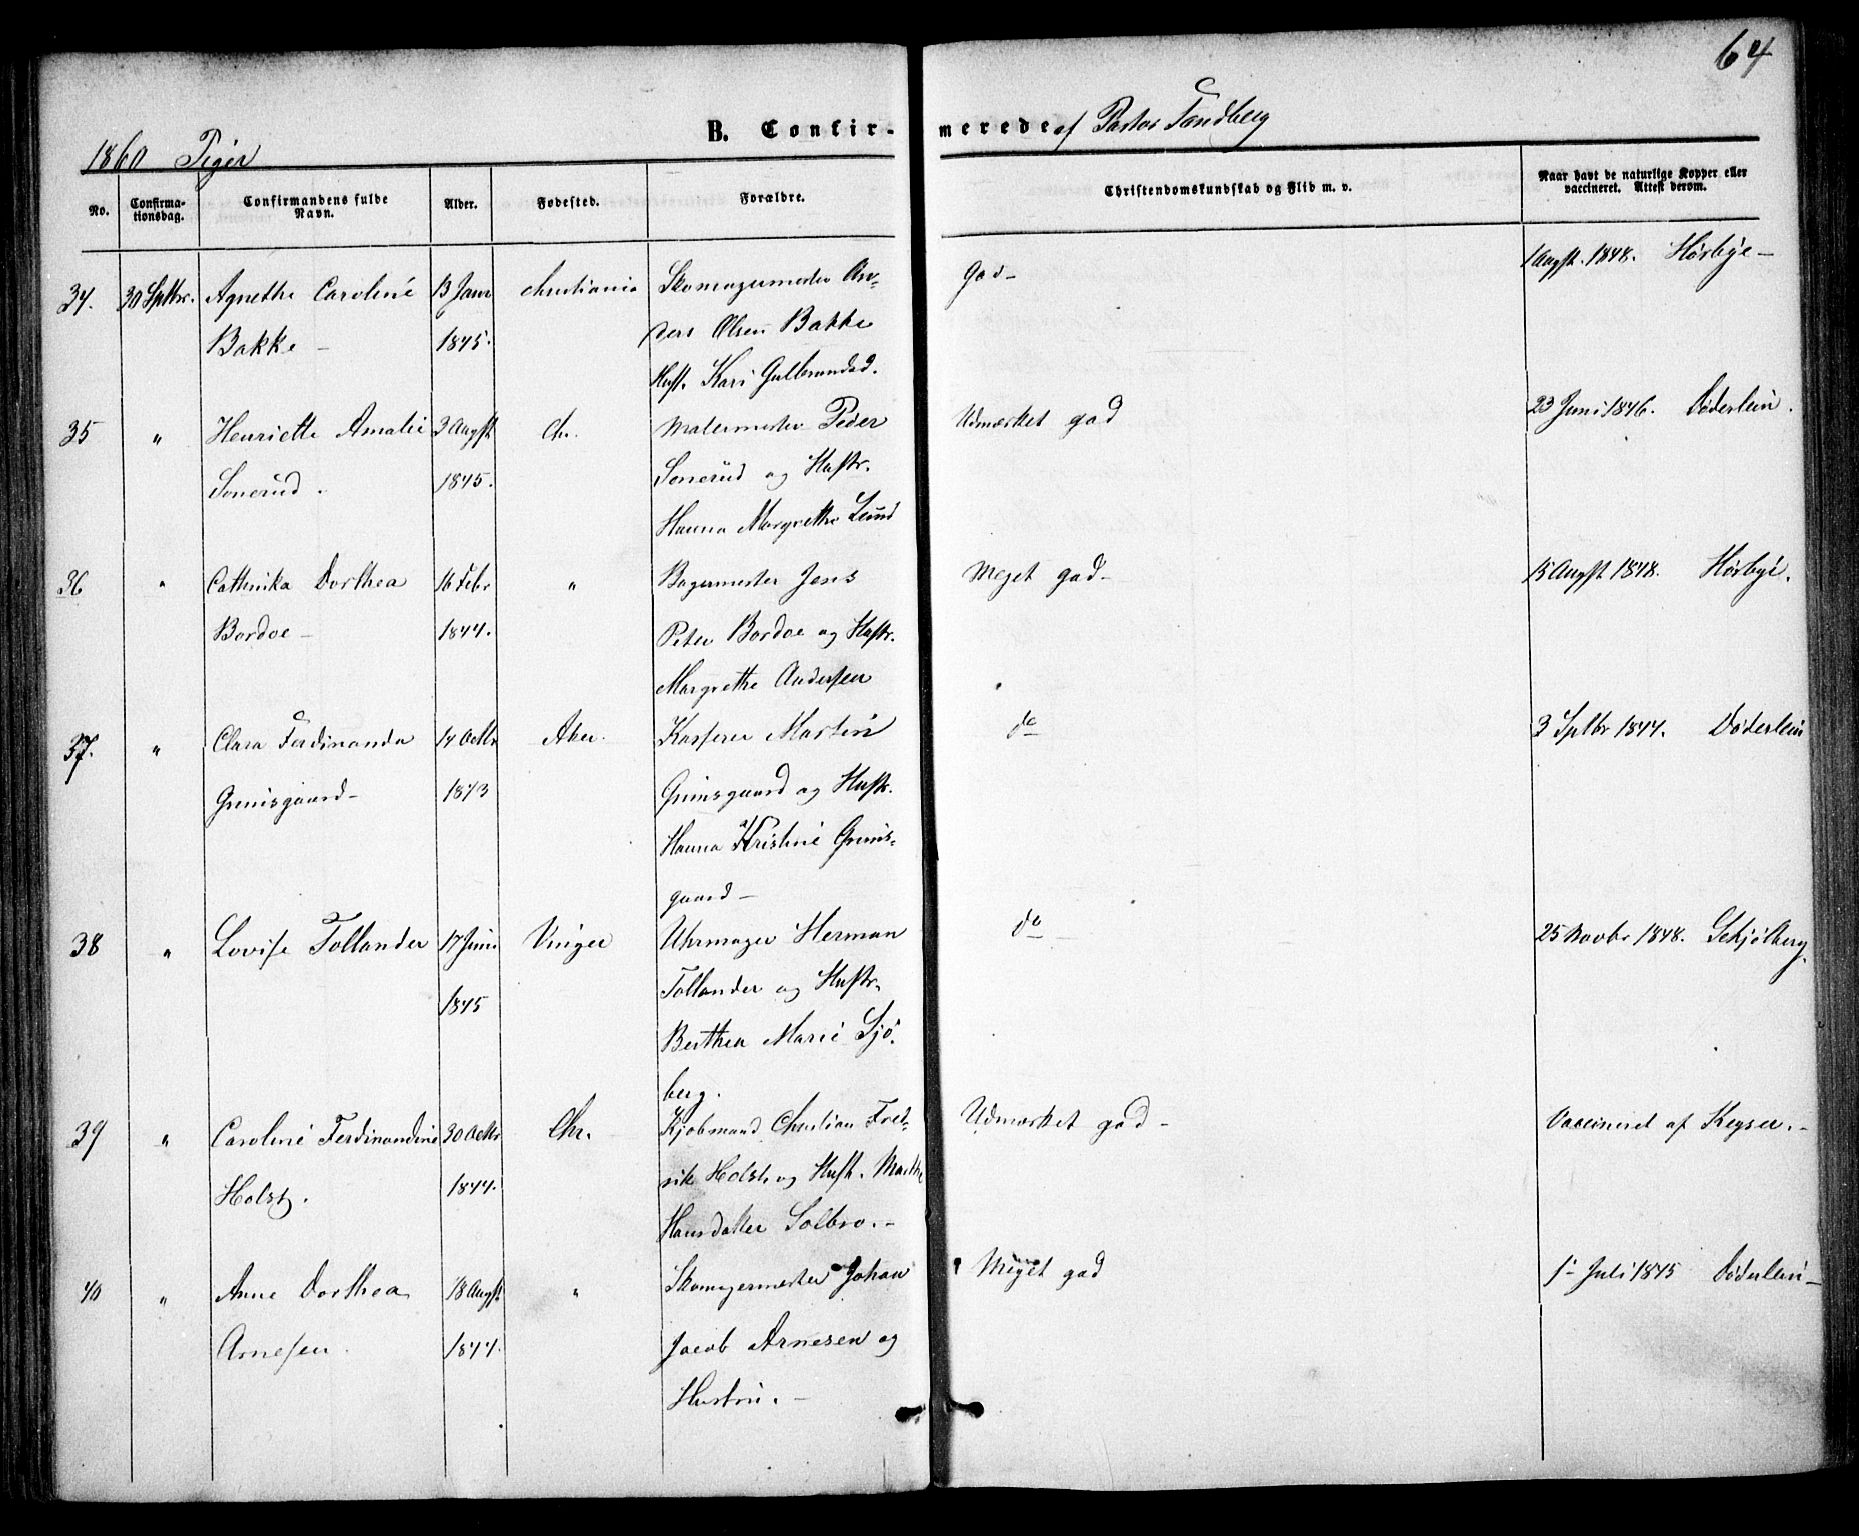 64
B. Confirmerede af Pastor Tandberg
1860 Piger
No.
Confirma-
tionsdag.
Confirmandens fulde
Navn.
Alder.
Fødested.
Forældre.
Christendomskundskab og Flid m. v.
Naar havt de naturlige Kopper eller
vaccineret. Attest derom.
34. 30 Sptbr. Agnethe Caroline 13 Janr Christiania Skomagermester An- God- 1 Augst. 1848. Hørbye-
Bakke - 1845. ders Olsen Bakke
Hust. Kari Gulbrandsd.
35 " Henriette Amalie 3 Augst Chr. Malermester Peder Udmærket god 23 Juni 1846. Døderlein.
Sonerud. 1845. Sonerud og Hustr.
Hanna Margrethe Lund
36 " Cathrika Dorthea 16 Febr " Bagermester Jens Meget god- 15 Augst 1848. Hørbye.
Bordoe - 1844. Peter Bordoe og Hustr.
Margrethe Andersen
37. " Clara Ferdinanda 14 Octbr Aker. Kasserer Martin do 3 Sptbr 1844. Døderlein
Grimsgaard- 1843 Grimsgaard og Hustr.
Hanna Kristine Grims-
gaard-
38 " Lovise Tollander 17 Juni Vinger Uhrmager Herman do 25 Novbr 1848. Schjølberg.
1845 Tollander og Hustr.
Berthea Marie Sjö-
berg.
39 " Caroline Ferdinandine 30 Octbr Chr. Kjøbmand Christian Fred- Udmærket god - Vaccineret af Keyser.-
Holst. 1844. rik Holst og Hust. Marthe
Hansdatter Solbro.-
40 " Anne Dorthea 18 Augst " Skomagermester Johan Meget god 1- Juli 1845 Døderlein-
Arnesen. 1844. Jacob Arnesen og
Hustru.-